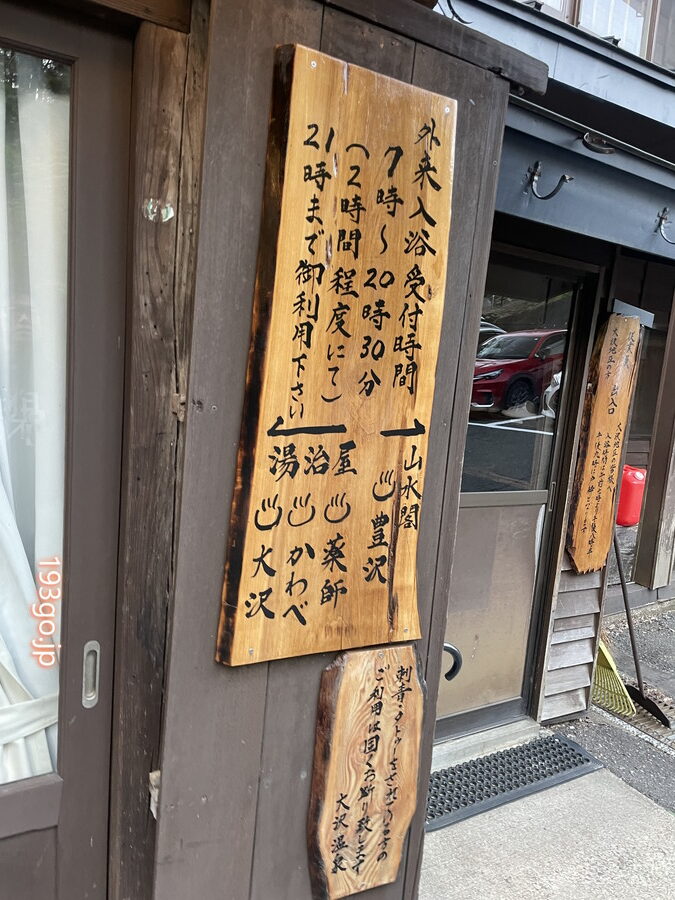 外来入浴受付時間
7時～20時30分
(2時間程度にて)
21時まで御利用下さい
→山水閣
♨豊沢
←湯治屋
♨薬師
♨かわべ
♨大沢
刺青・タトゥーをされている方の
ご利用は固くお断り致します
大沢温泉
大沢地区の方
出入口
大沢地区の皆様へ
193go.jp